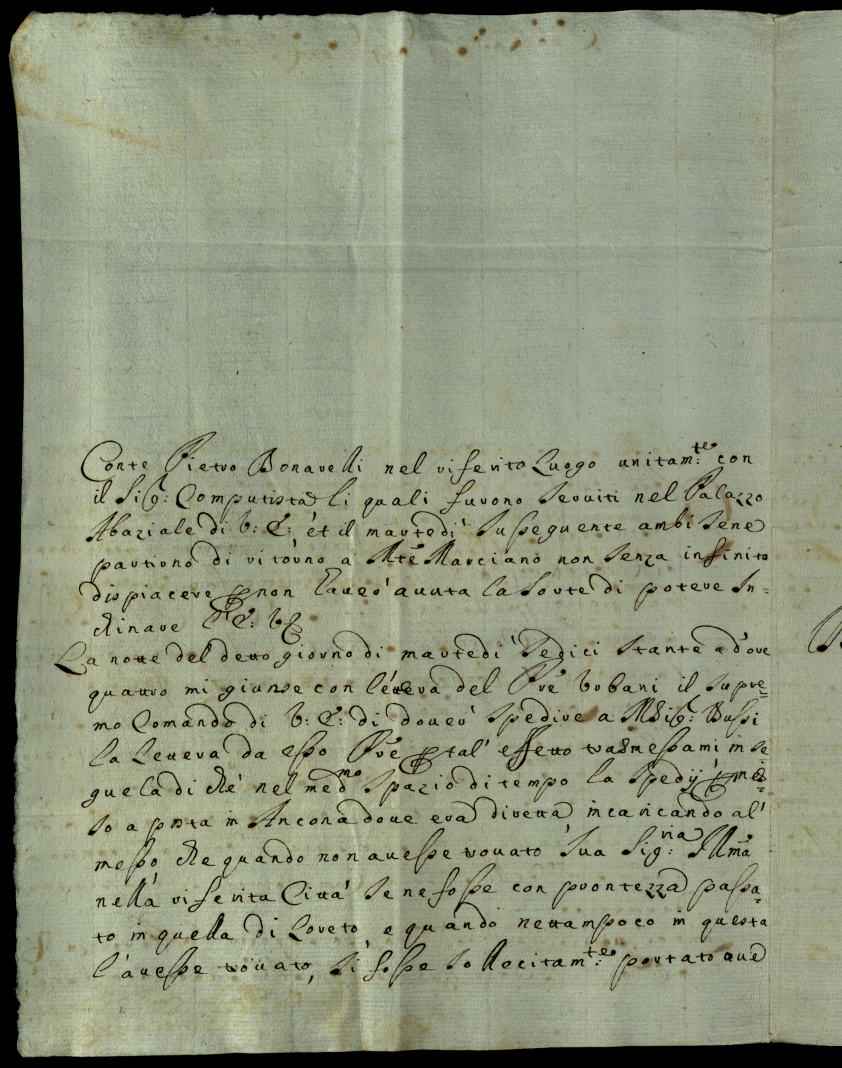 Conte Pietro Bonarelli nel riferito Luogo unitam:te con
il Sig: Computista li quali furono serviti nel Palazzo
Abaziale di V: E: ét il martedi' susseguente ambi sene
partirno di ritorno a Mte Marciano non senza infinito
dispiacere non haver' avuta la sorte di potere In=
chinare V: E:
La notte del detto giorno di martedi' sedici stante ad ore
quattro mi giunse con léttera del Pre Urbani il supre=
mo Comando di V: E: di dover' spedire a M Sig: Bussi
la Lettera da esso Pre tal' effetto trasmessami in se
quela di che' nel medmo spazio di tempo la spedij' mes=
so a posta in Ancona dove era diretta incaricando al'
messo che quando non avesse trovato Sua Sig:ria Illma
nella' riferita Citta' se ne fosse con prontezza passa=
to in quella di Loreto, e quando nettampoco in questa
l'avesse trovato, si fosse sollecitam:te portato ave